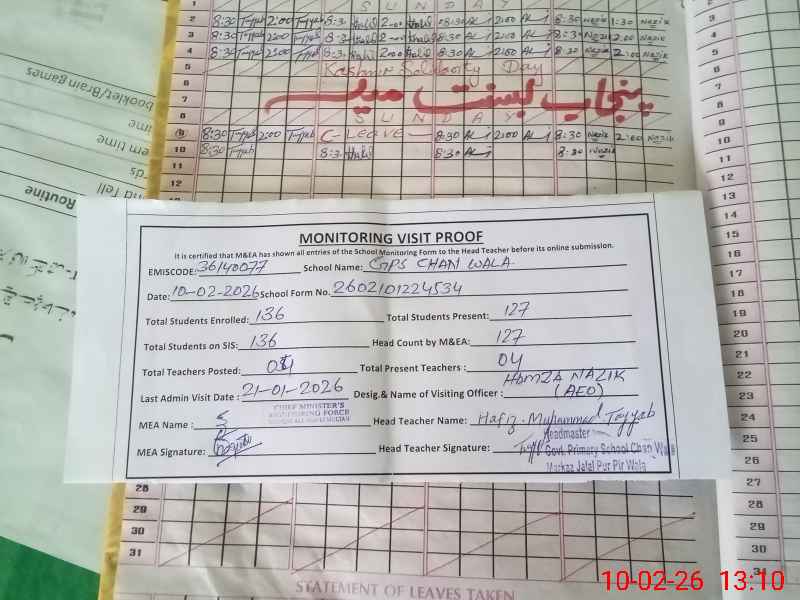 1
2 8:30 Tayyab 2:00 Tayyab 8:3. Khalid 2:00 Khalid 8:30 Al 2:00 Al 8:30 Nazik 1:30 Nazik
3 8:30 Tayyab 2:00 Tayyab 8:3. Khalid 2:00 Khalid 8:30 Al 2:00 Al 8:30 Nazik 2:00 Nazik
4 8:30 Tayyab 2:00 Tayyab 8:3. Khalid 2:00 Khalid 8:30 Al 2:00 Al 8:30 Nazik 2:00 Nazik
5 Kashmir Solidarity Day
6
7 پنجاب بسنت میلہ
8 SUNDAY
9 8:30 Tayyab 2:00 Tayyab C- LEAVE 8:30 Al 2:00 Al 8:30 Nazik 2:00 Nazik
10 8:30 Tayyab 8:3. Khalid 8:30 Al 8:30 Nazik
11
12
booklet/Brain games
Routine
MONITORING VISIT PROOF
It is certified that M&EA has shown all entries of the School Monitoring Form to the Head Teacher before its online submission.
EMISCODE: 36140077 School Name: GPS CHAN WALA
Date: 10-02-2026 School Form No. 2602101224534
Total Students Enrolled: 136 Total Students Present: 127
Total Students on SIS: 136 Head Count by M&EA: 127
Total Teachers Posted: 04 Total Present Teachers: 04
Last Admin Visit Date: 21-01-2026 Desig.& Name of Visiting Officer: HAMZA NAZIK
(AEO)
CHIEF MINISTER'S
MONITORING FORCE
MEA Name: Head Teacher Name: Hafiz Muhammad Tayyab
MEA Signature: Head Teacher Signature:
Headmaster
Govt. Primary School Chan Wala
Markaz Jalal Pur Pir Wala
28
29
30
31
STATEMENT OF LEAVES TAKEN
2
3
4
5
6
7
8
9
10
11
12
13
14
15
16
17
18
19
20
21
22
23
24
25
26
27
28
29
30
31
10-02-26 13:10